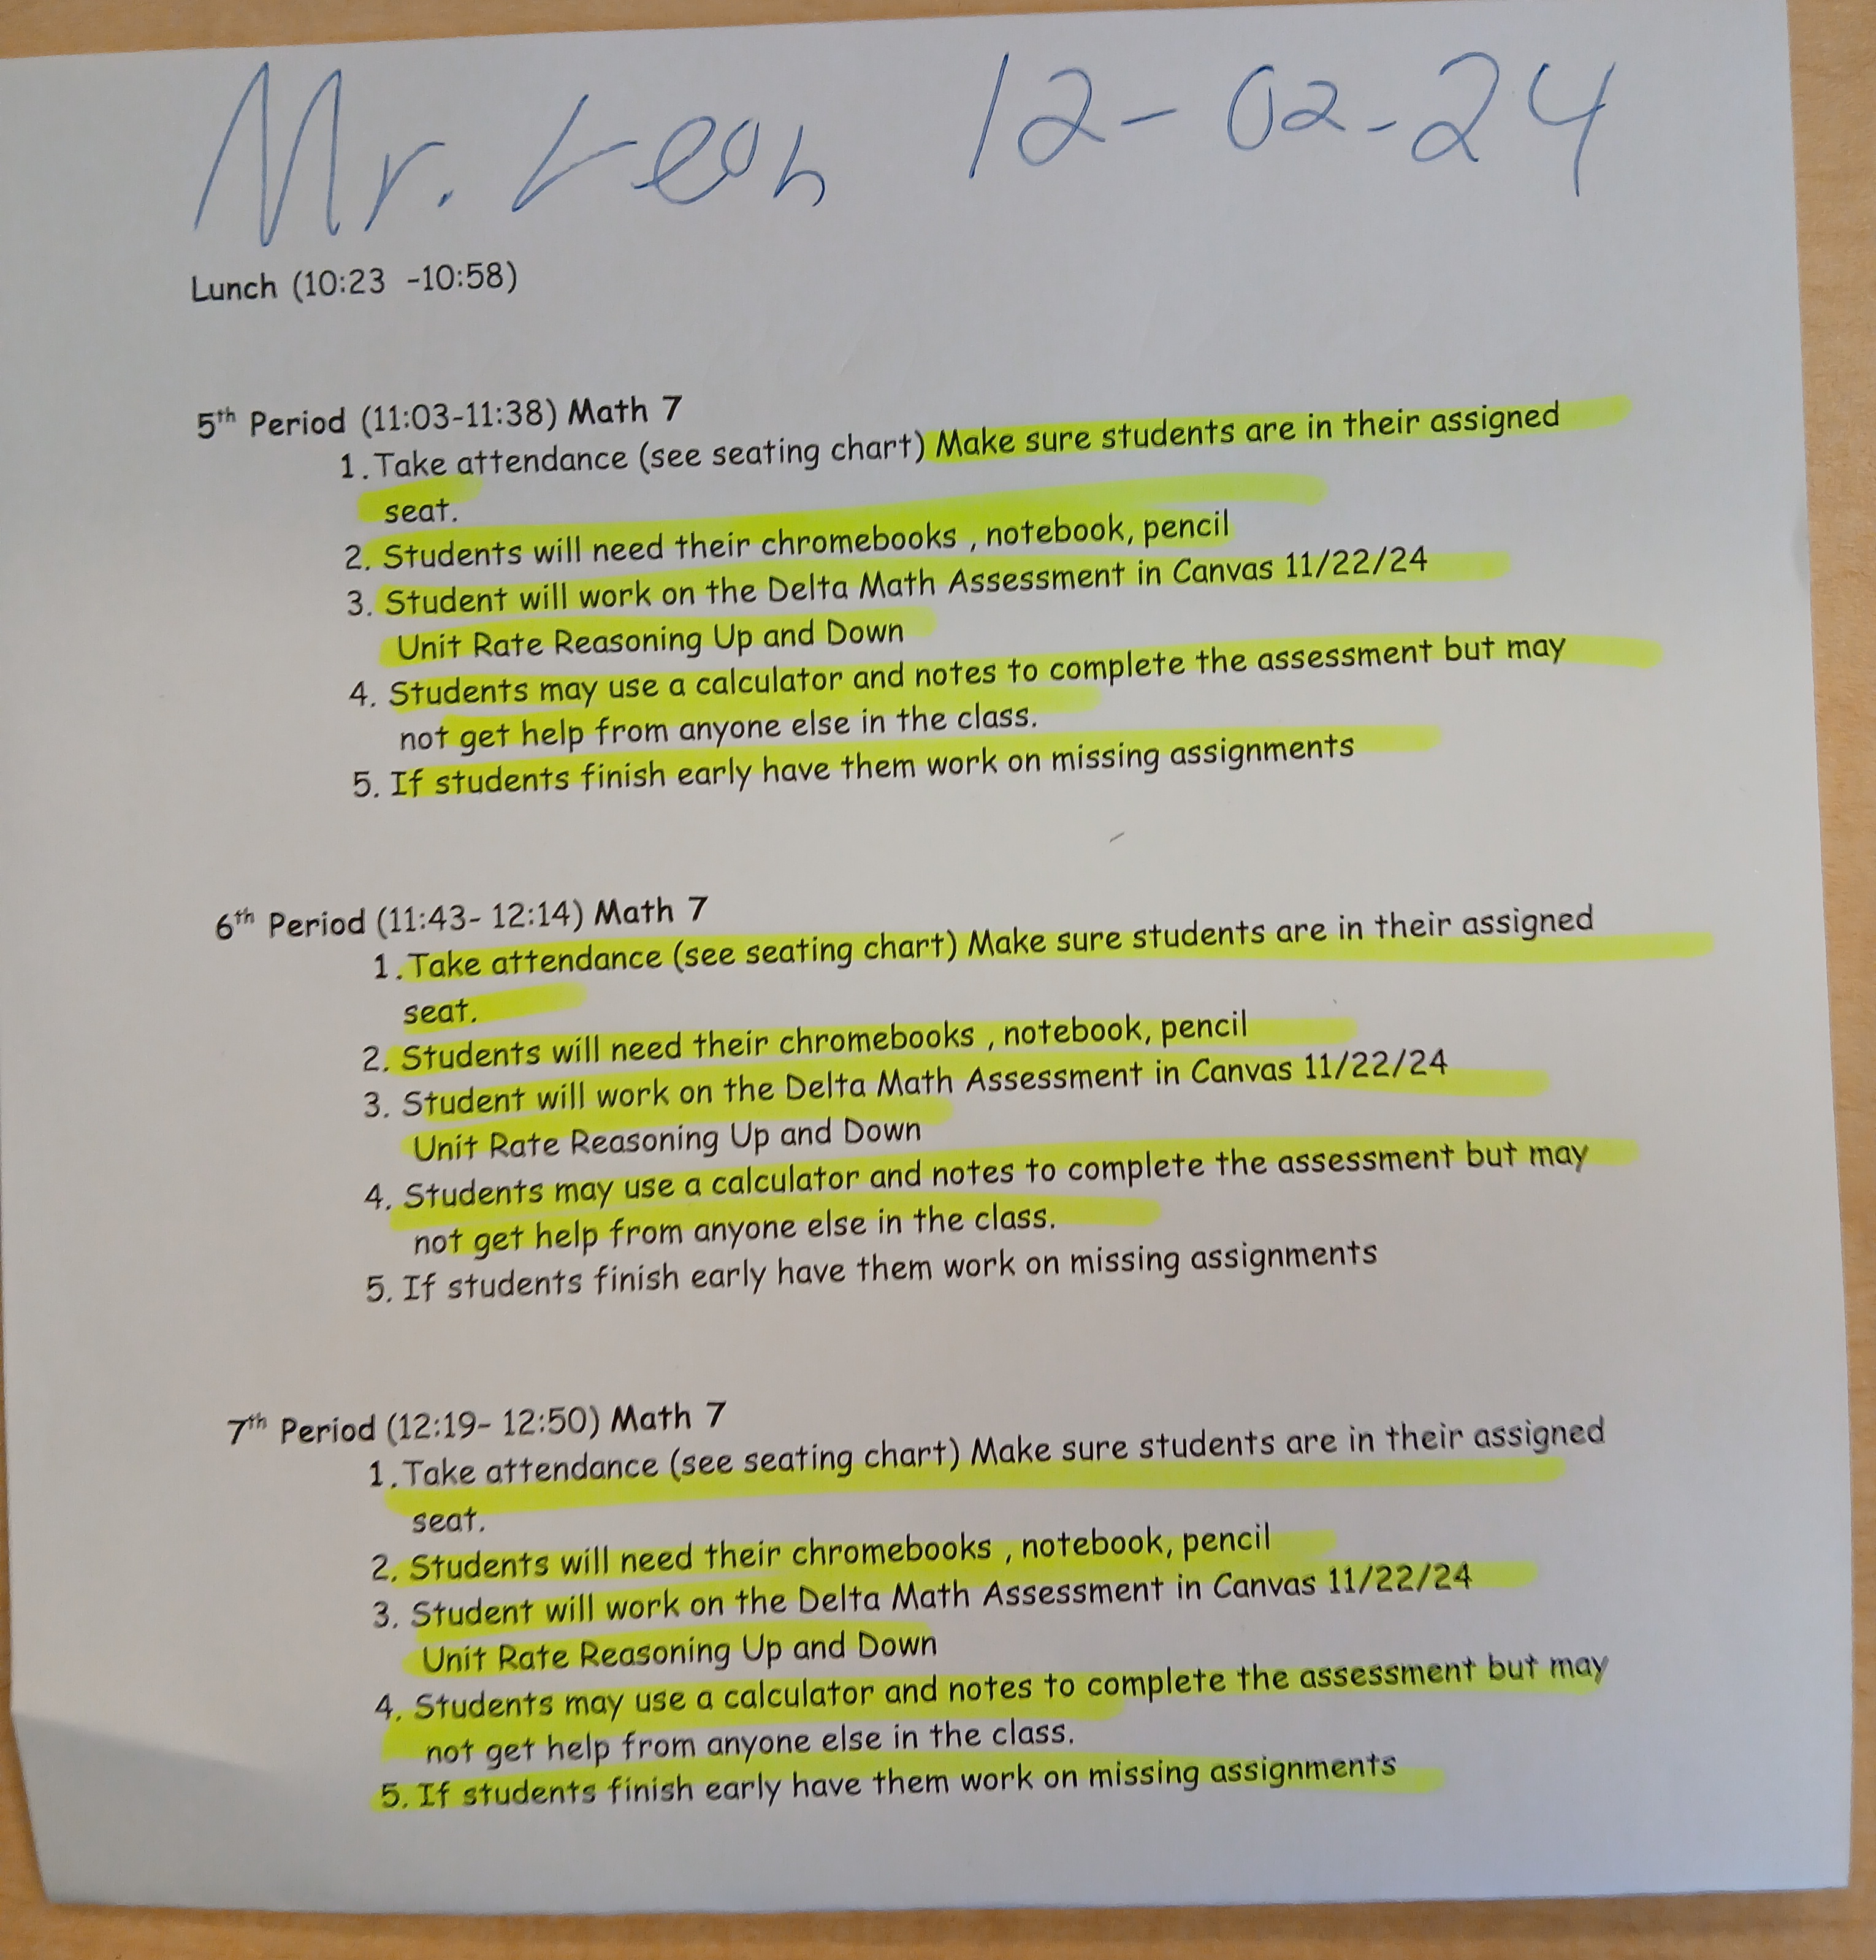 Mr. Leon 12-02-24
Lunch (10:23 -10:58)
5th Period (11:03-11:38) Math 7
1. Take attendance (see seating chart) Make sure students are in their assigned
seat.
2. Students will need their chromebooks , notebook, pencil
3. Student will work on the Delta Math Assessment in Canvas 11/22/24
Unit Rate Reasoning Up and Down
4. Students may use a calculator and notes to complete the assessment but may
not get help from anyone else in the class.
5. If students finish early have them work on missing assignments
6th Period (11:43- 12:14) Math 7
1. Take attendance (see seating chart) Make sure students are in their assigned
seat.
2. Students will need their chromebooks , notebook, pencil
3. Student will work on the Delta Math Assessment in Canvas 11/22/24
Unit Rate Reasoning Up and Down
4. Students may use a calculator and notes to complete the assessment but may
not get help from anyone else in the class.
5. If students finish early have them work on missing assignments
7th Period (12:19- 12:50) Math 7
1. Take attendance (see seating chart) Make sure students are in their assigned
seat.
2. Students will need their chromebooks , notebook, pencil
3. Student will work on the Delta Math Assessment in Canvas 11/22/24
Unit Rate Reasoning Up and Down
4. Students may use a calculator and notes to complete the assessment but may
not get help from anyone else in the class.
5. If students finish early have them work on missing assignments